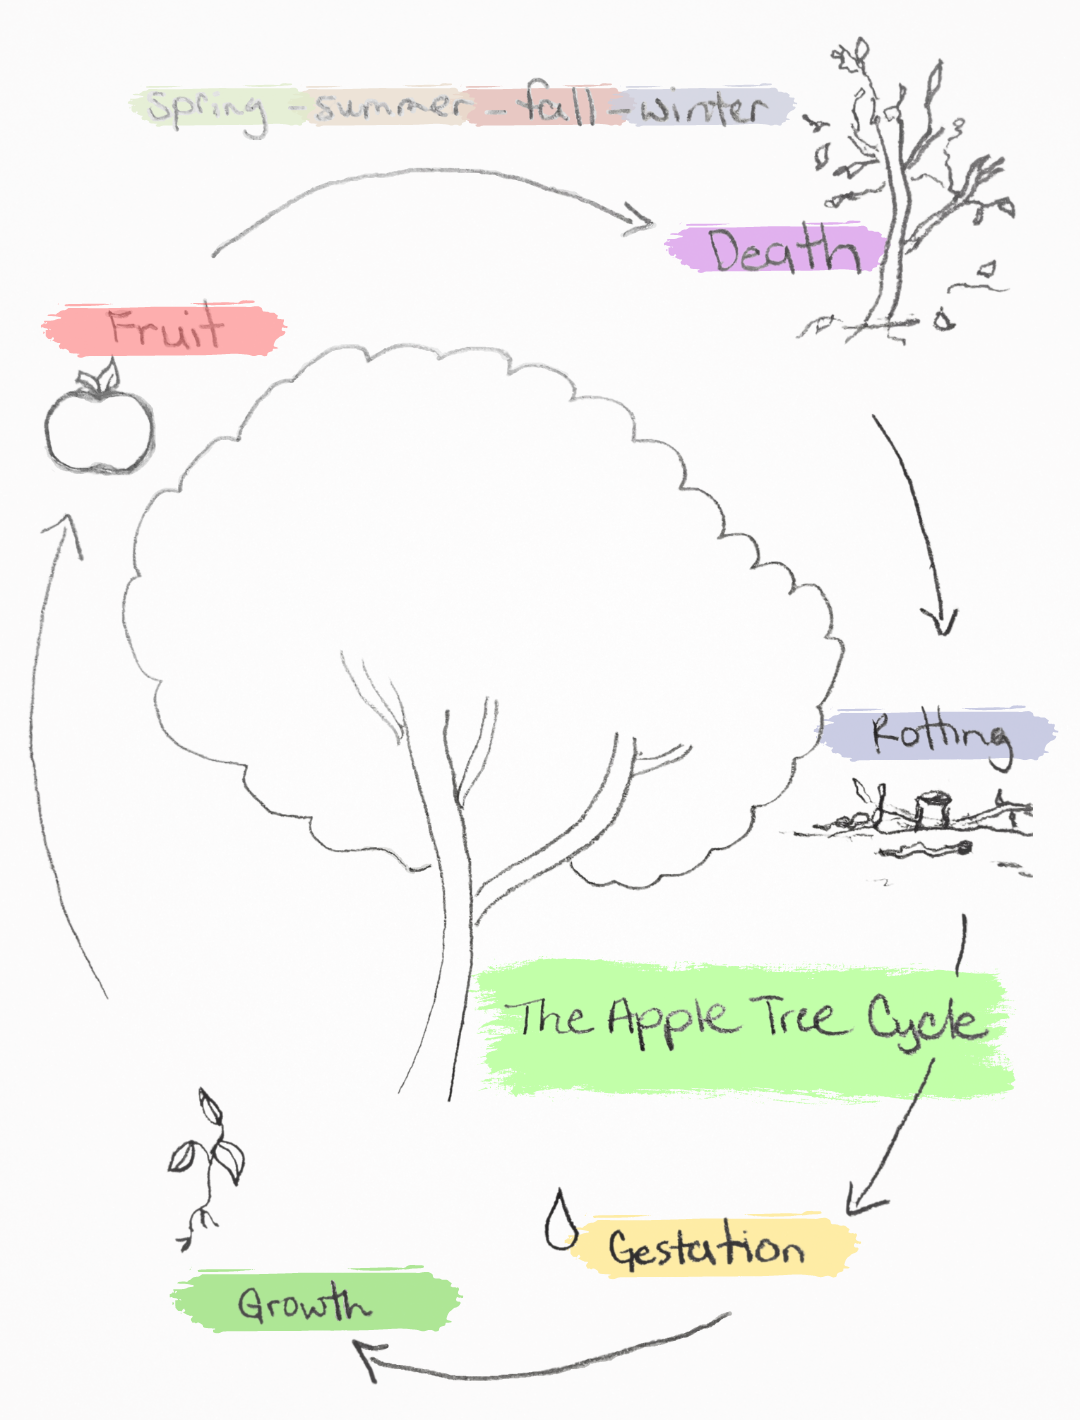 spring - summer - fall - winter
Death
Fruit
Rotting
The Apple Tree Cycle
Gestation
Growth